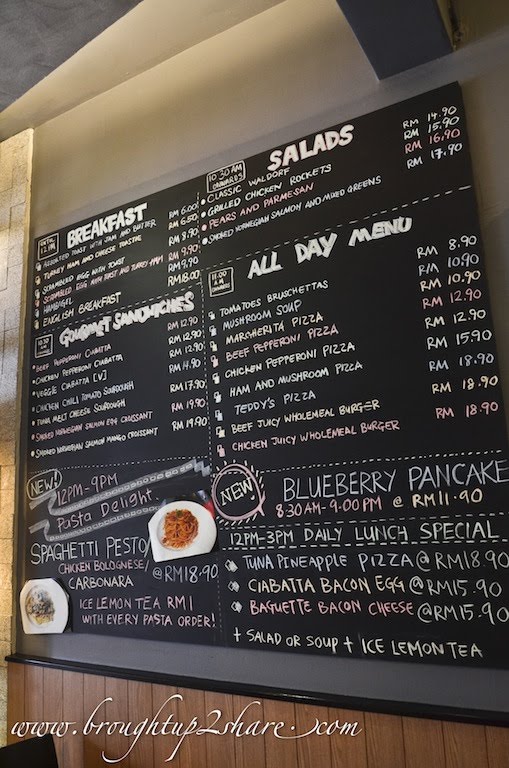 UNTIL
12 P.M
BREAKFAST
ASSORTED TOAST WITH JAM AND BUTTER RM 6.00
TURKEY HAM AND CHEESE TOASTIE RM 6.50
SCRAMBLED EGG WITH TOAST RM 8.90
SCRAMBLED EGG WITH TOAST AND TURKEY HAM RM 9.90
RM 9.90
ENGLISH BREAKFAST RM 18.00
10.30
GOURMET SANDWICHES
BEEF PEPPERONI CIABATTA RM 12.90
CHICKEN PEPPERONI CIABATTA RM 12.90
VEGGIE CIABATTA [V] RM 12.90
CHICKEN CHILI TOMATO SOURDOUGH RM 14.90
TUNA MELT CHEESE SOURDOUGH RM 17.90
SMOKED NORWEGIAN SALMON EGG CROISSANT RM 19.90
SMOKED NORWEGIAN SALMON MANGO CROISSANT RM 19.90
NEW!
12PM-9PM
Pasta Delight
SPAGHETTI PESTO/
CHICKEN BOLOGNESE/
CARBONARA @RM18.90
ICE LEMON TEA RM1
WITH EVERY PASTA ORDER!
10.30AM
ONWARDS
SALADS
CLASSIC WALDORF RM 14.90
GRILLED CHICKEN ROCKETS RM 15.90
PEARS AND PARMESAN RM 16.90
SMOKED NORWEGIAN SALMON AND MIXED GREENS RM 17.90
11.00
A.M
ONWARDS
ALL DAY MENU
TOMATOES BRUSCHETTAS RM 8.90
MUSHROOM SOUP RM 10.90
MARGHERITA PIZZA RM 10.90
BEEF PEPPERONI PIZZA RM 12.90
CHICKEN PEPPERONI PIZZA RM 12.90
HAM AND MUSHROOM PIZZA RM 15.90
TEDDY'S PIZZA RM 18.90
BEEF JUICY WHOLEMEAL BURGER RM 18.90
CHICKEN JUICY WHOLEMEAL BURGER RM 18.90
NEW
BLUEBERRY PANCAKE
8:30AM-9:00PM @ RM11.90
12PM-3PM DAILY LUNCH SPECIAL
TUNA PINEAPPLE PIZZA @RM18.90
CIABATTA BACON EGG @RM15.90
BAGUETTE BACON CHEESE @RM15.90
+ SALAD OR SOUP + ICE LEMON TEA
www.broughtup2share.com